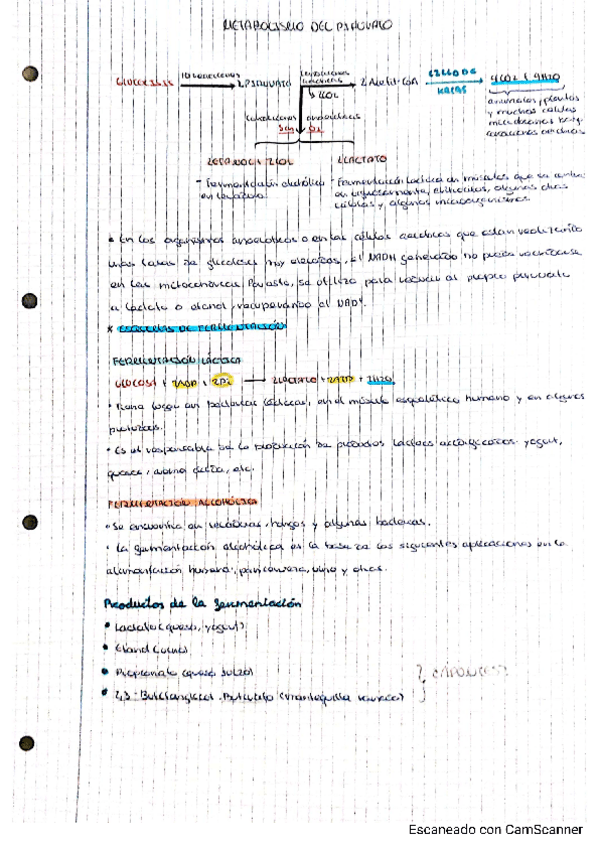 METABOLISMO DEL PIRUVATO
GLUCOSA 10 reacciones 2 PIRUVATO condiciones aeróbicas 2 Acetil-COA CICLO DE KREBS 4CO2 + 4H2O
2CO2
animales, plantas
y muchas células
microbianas
condiciones anaeróbicas
Sin O2
2 ETANOL + 2CO2 2 LACTATO
- Fermentación alcohólica
en levadura.
- Fermentación láctica en músculo que se
eritrocitos, algunas otras
células y algunos microorganismos
• En los organismos anaeróbicos o en las células aeróbicas que están realizando
unas tasas de glucólisis muy elevadas, el NADH generado no puede reoxidarse
en las mitocondrias. Por esto, se utiliza para reducir al propio piruvato
a lactato o etanol, recuperando el NAD+.
* ESQUEMAS DE FERMENTACIÓN
FERMENTACIÓN LÁCTICA
GLUCOSA + 2ADP + 2Pi → 2 LACTATO + 2ATP + 2H2O
• Tiene lugar en bacterias lácticas, en el músculo esquelético humano y en algunos
• Es el responsable de la producción de productos lácteos acidificados: yogurt,
queso, crema ácida, etc.
FERMENTACIÓN ALCOHÓLICA
• Se encuentra en levaduras, hongos y algunas bacterias.
• La fermentación alcohólica es la base de las siguientes aplicaciones en la
alimentación humana: pan, cerveza, vino y otras.
Productos de la fermentación
• Lactato (queso, yogurt)
• Etanol (vino)
• Propionato (queso suizo)
• 2,3-Butilenglicol, Butirato (mantequilla)
Escaneado con CamScanner